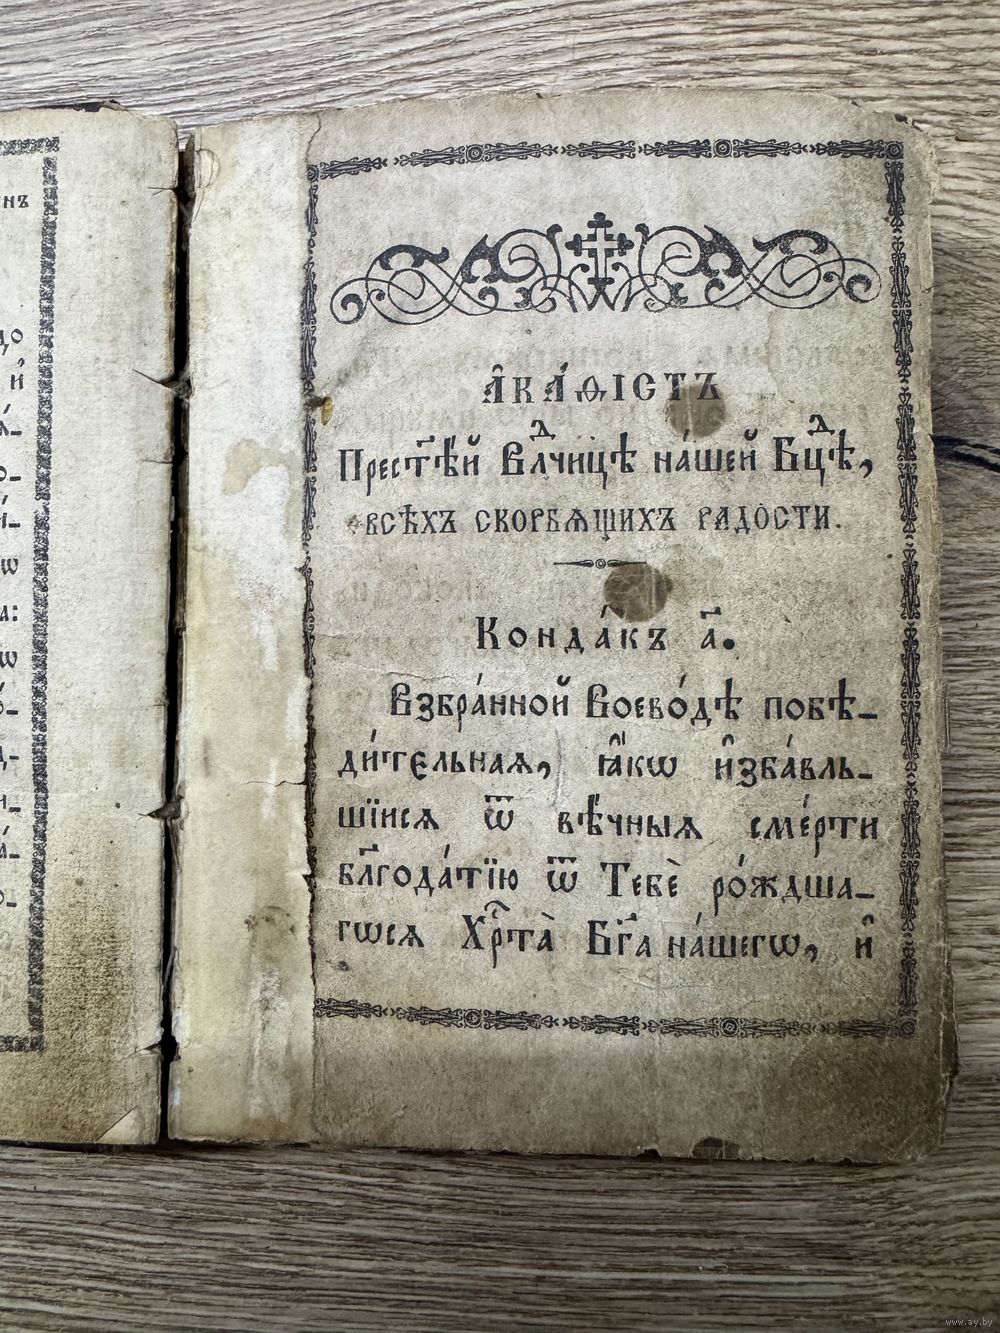 нъ
до
и҆
ѡ
а:
ѡ
А҆КА́ѲІСТЪ
Прест҃ѣ́й Влⷣчицѣ на́шей Бцⷣѣ,
всѣхъ скорбѧщихъ радости.
Конда́къ а҃.
Взбра́нной Воево́дѣ побѣ_
ди́тельнаѧ, ꙗ҆́кѡ и҆зба́вль_
шїисѧ ѿ вѣ́чныѧ сме́рти
бл҃года́тїю ѿ Тебѐ ро́ждша_
гѡсѧ Хрⷭ҇та̀ Бг҃а на́шегѡ, и҆
www.ay.by